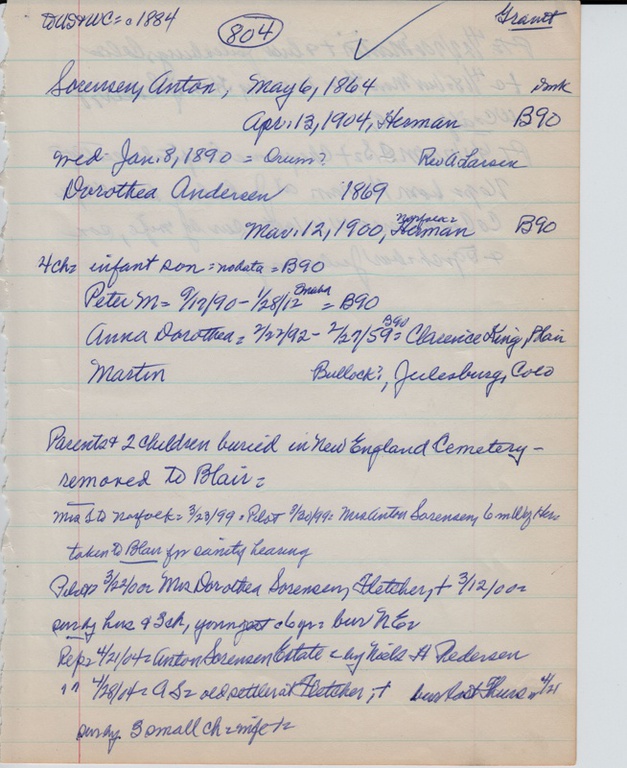 DUS+WC= c1884
804
Grant
Sorensen, Anton, May 6, 1864 Dmk
Apr. 13, 1904, Herman B90
med Jan. 8, 1890 = Orum? Rev A Larsen
Dorothea Andersen 1869
Mar. 12, 1900, Herman B90
4 ch= infant son = no data = B90
Peter M = 9/17/90 - 1/28/12 Omaha = B90
Anna Dorothea = 2/27/92 - 2/27/59 = B90 Clarence King, Blair
Martin Bullock?, Julesburg, Colo
Parents + 2 children buried in New England Cemetery -
removed to Blair =
Mrs S to Norfolk = 3/23/99 = Pilot 3/30/99 = Mrs Anton Sorensen, 6 m W of Her=
taken to Blair for sanity hearing
Pilot 3/22/00 = Mrs Dorothea Sorensen, Fletcher, + 3/12/00 =
surv by hus & 3 ch, youngest 6 yr = bur N E =
Rep = 4/21/04 = Anton Sorensen Estate = by Niels H Pedersen
" " 4/28/04 = A S = old settler at Fletcher, + bur last Thurs = 4/21
surv by 3 small ch = wife +=